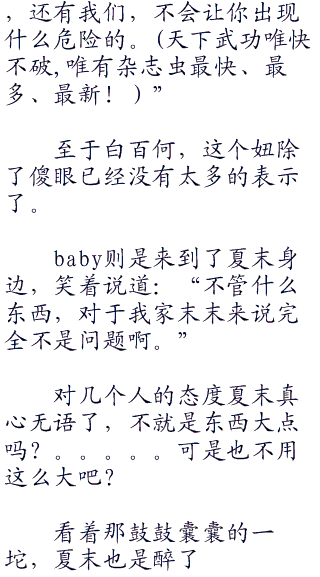 ，还有我们，不会让你出现
什么危险的。(天下武功唯快
不破,唯有杂志虫最快、最
多、最新！)”
至于白百何，这个妞除
了傻眼已经没有太多的表示
了。
baby则是来到了夏末身
边，笑着说道：“不管什么
东西，对于我家末末来说完
全不是问题啊。”
对几个人的态度夏末真
心无语了，不就是东西大点
吗？。。。。。可是也不用
这么大吧？
看着那鼓鼓囊囊的一
坨，夏末也是醉了